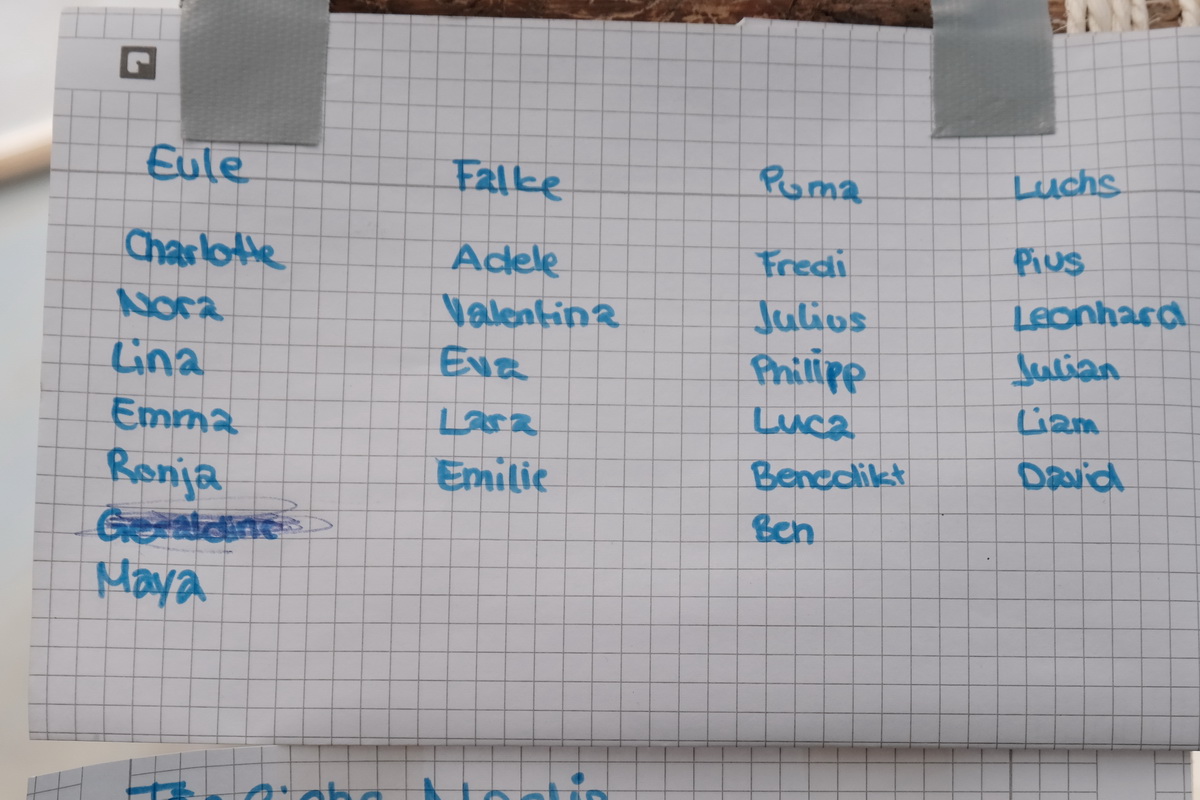 Eule Falke Puma Luchs
Charlotte Adele Fredi Pius
Nora Valentina Julius Leonhard
Lina Eva Philipp Julian
Emma Lara Luca Liam
Ronja Emilie Benedikt David
Geraldine Ben
Maya